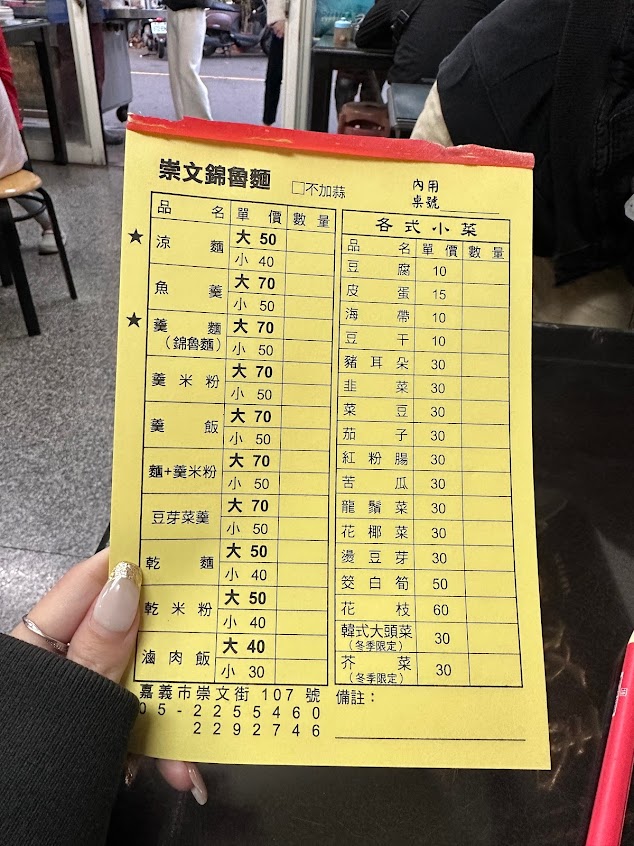 崇文錦魯麵 □不加蒜
內用
桌號
品名 單價 數量
★ 涼麵 大 50
小 40
魚羹 大 70
小 50
★ 羹麵 大 70
(錦魯麵) 小 50
羹米粉 大 70
小 50
羹飯 大 70
小 50
麵+羹米粉 大 70
小 50
豆芽菜羹 大 70
小 50
乾麵 大 50
小 40
乾米粉 大 50
小 40
滷肉飯 大 40
小 30
嘉義市崇文街 107 號
05-2255460
2292746
各式小菜
品名 單價 數量
豆腐 10
皮蛋 15
海帶 10
豆干 10
豬耳朵 30
韭菜 30
菜豆 30
茄子 30
紅粉腸 30
苦瓜 30
龍鬚菜 30
花椰菜 30
燙豆芽 30
筊白筍 50
花枝 60
韓式大頭菜 30
(冬季限定)
芥菜 30
(冬季限定)
備註：